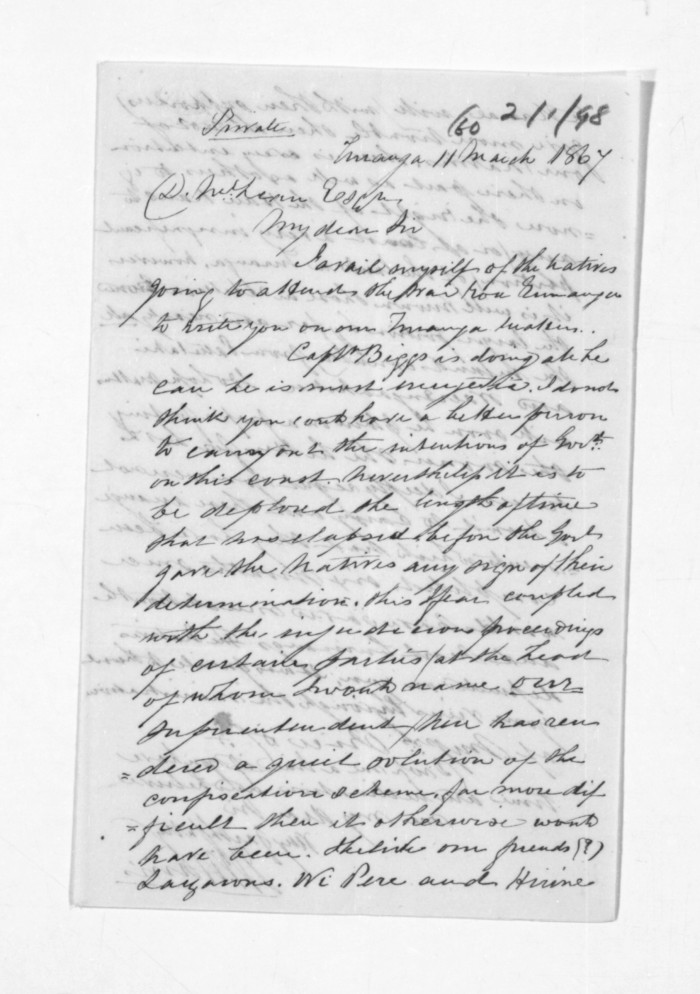 (60 2/1/98
Private.
Turanga 11 March 1867
D. McLean Esqre
My dear Sir
I avail myself of the Natives
going to attend the
to write you on our Turanga matters.
Captn Biggs is doing all he
can he is most energetic. I do not
think you could have a better person
to carry out the intentions of Govt.
on this coast. it is to
be deplored the length of time
that has elapsed before the Govt
gave the Natives any sign of their
determination. this coupled
with the injudicious proceedings
of certain parties (at the head
of whom I would name our
Superintendent) here has ren
=dered a quiet solution of the
confiscation scheme far more dif
=ficult than it otherwise would
have been. our friends (?)
Wi Pere and Hirine